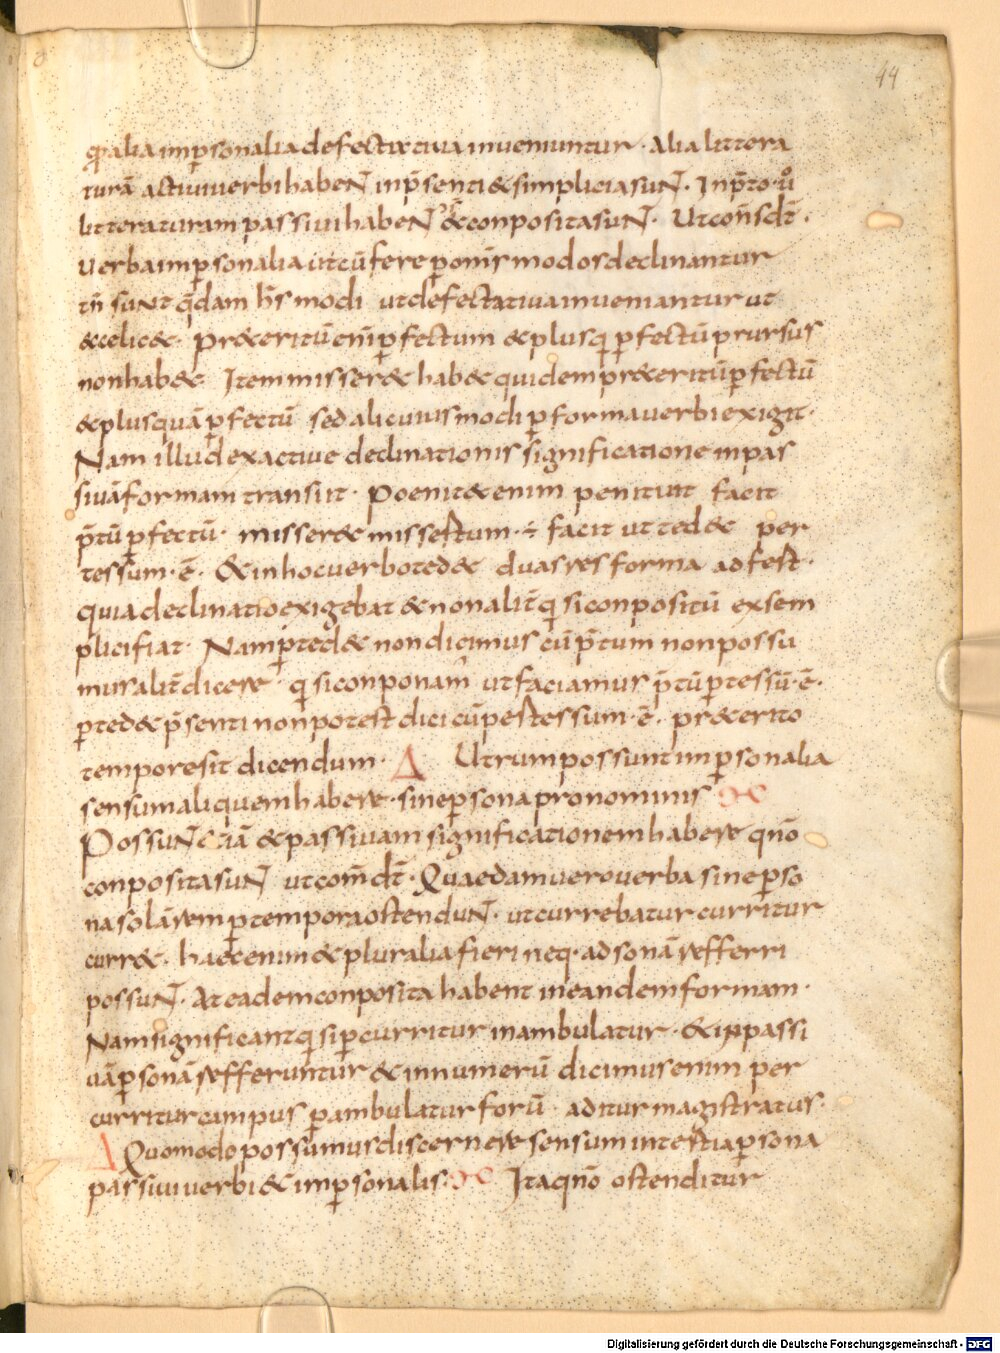 44
qꝛ alia inp̱sonalia defectiva cuia inveniuntur · Alia littera
turā activi verbi habent in p̄senti & simplicia sunt · In p̄to · ů
litteraturam passivi habent & conposita sunt · Ut con̄sdt̄ ·
Verba inp̱sonalia ut cū fere p̱ om̄s modos declinantur
tn̄ sunt q̄dam h̄s modi ut defectativa inveniantur ut
& celic& · pr&eritū eni p̱fectum & plusqi p̱fectū prursus
non hab& Item misser& hab& quidem pr&eritū p̱fectū
& plusquā p̱fectū sed alicuius modi p̱ forma verbi exigit ·
Nam illud ex active declinationis significatione in pas
sivā formam transiit · Poenit& enim penituit facit
p̄tū p̱fectū · misser& missestum · ÷ facit ut ted& per
tessum · ē · & in hoc verbo ted& duas res forma adfest ·
quia declinatio exigebat & non alit̄ qi si conpositū ex sem
plici fiat · Nam p̱ted& non dicimus cū p̄tum non possu
mus alit̄ dicere qi si conponam̄ ut faciamus p̄tū p̱tessū · ē ·
p̱ted& p̄senti non potest dici cū pestessum · ē · pr&erito
tempore sit dicendum · Δ Utrum possunt inp̱sonalia
sensum aliquem habere · sine p̱sona pronominis
Possunt &iā & passivam significationem habere quō
conposita sunt ut com̄dt̄ · Quaedam vero verba sine p̱so
na solā rem p̱ tempora ostendunt · ut currebatur curritur
curr& · haec enim & pluralia fieri neq · ad sonā refferri
possunt · At eadem conposita habent in eandem formam ·
Nam significant qi si p̱curritur inambulatur · & in passi
vā p̱sonā refferuntur & in numerū dicimus enim per
curritur campus p̱ambulatur forū · aditur magistratus ·
Δ Quomodo possumus discernere sensum in testia p̱sona
passivi verbi & inp̱sonalis · Ita quō ostenditur
Digitalisierung gefördert durch die Deutsche Forschungsgemeinschaft · DFG